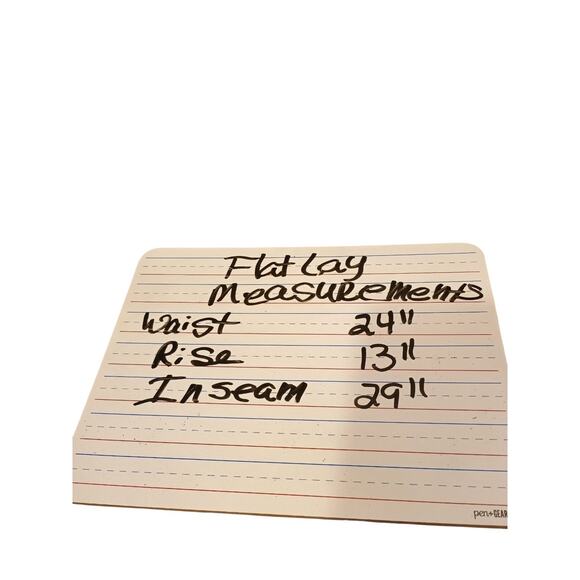 Flat Lay
Measurements
Waist 24"
Rise 13"
Inseam 29"
pen+GEAR